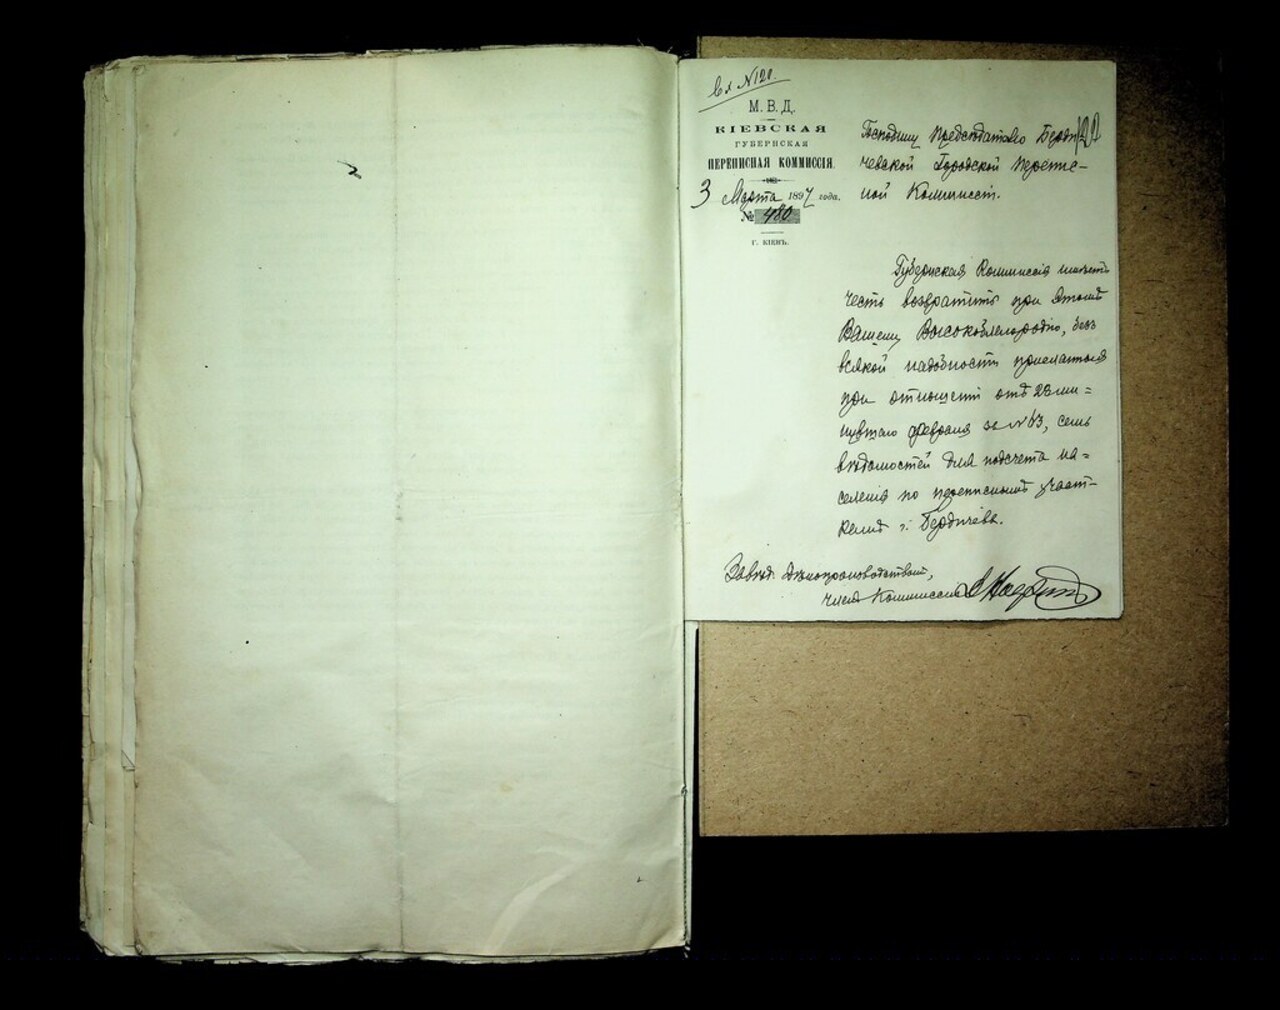 Вх №120.
М. В. Д.
КІЕВСКАЯ
ГУБЕРНСКАЯ
ПЕРЕПИСНАЯ КОММИССІЯ.
3 Марта 1897 года.
№ 480
Г. КІЕВЪ.
Господину Предсѣдателю Берди
чевской Городской Перепис-
ной Коммиссіи.
Губернская Коммиссія имѣетъ
честь возвратить при этомъ
Вашему Высокоблагородію, безъ
всякой надобности присланныя
при отношеніи отъ 28 ми=
нувшаго февраля за №63, семь
вѣдомостей для подсчета на=
селенія по переписнымъ участ-
камъ г. Бердичева.
Завѣд. дѣлопроизводствомъ,
Членъ Коммиссіи